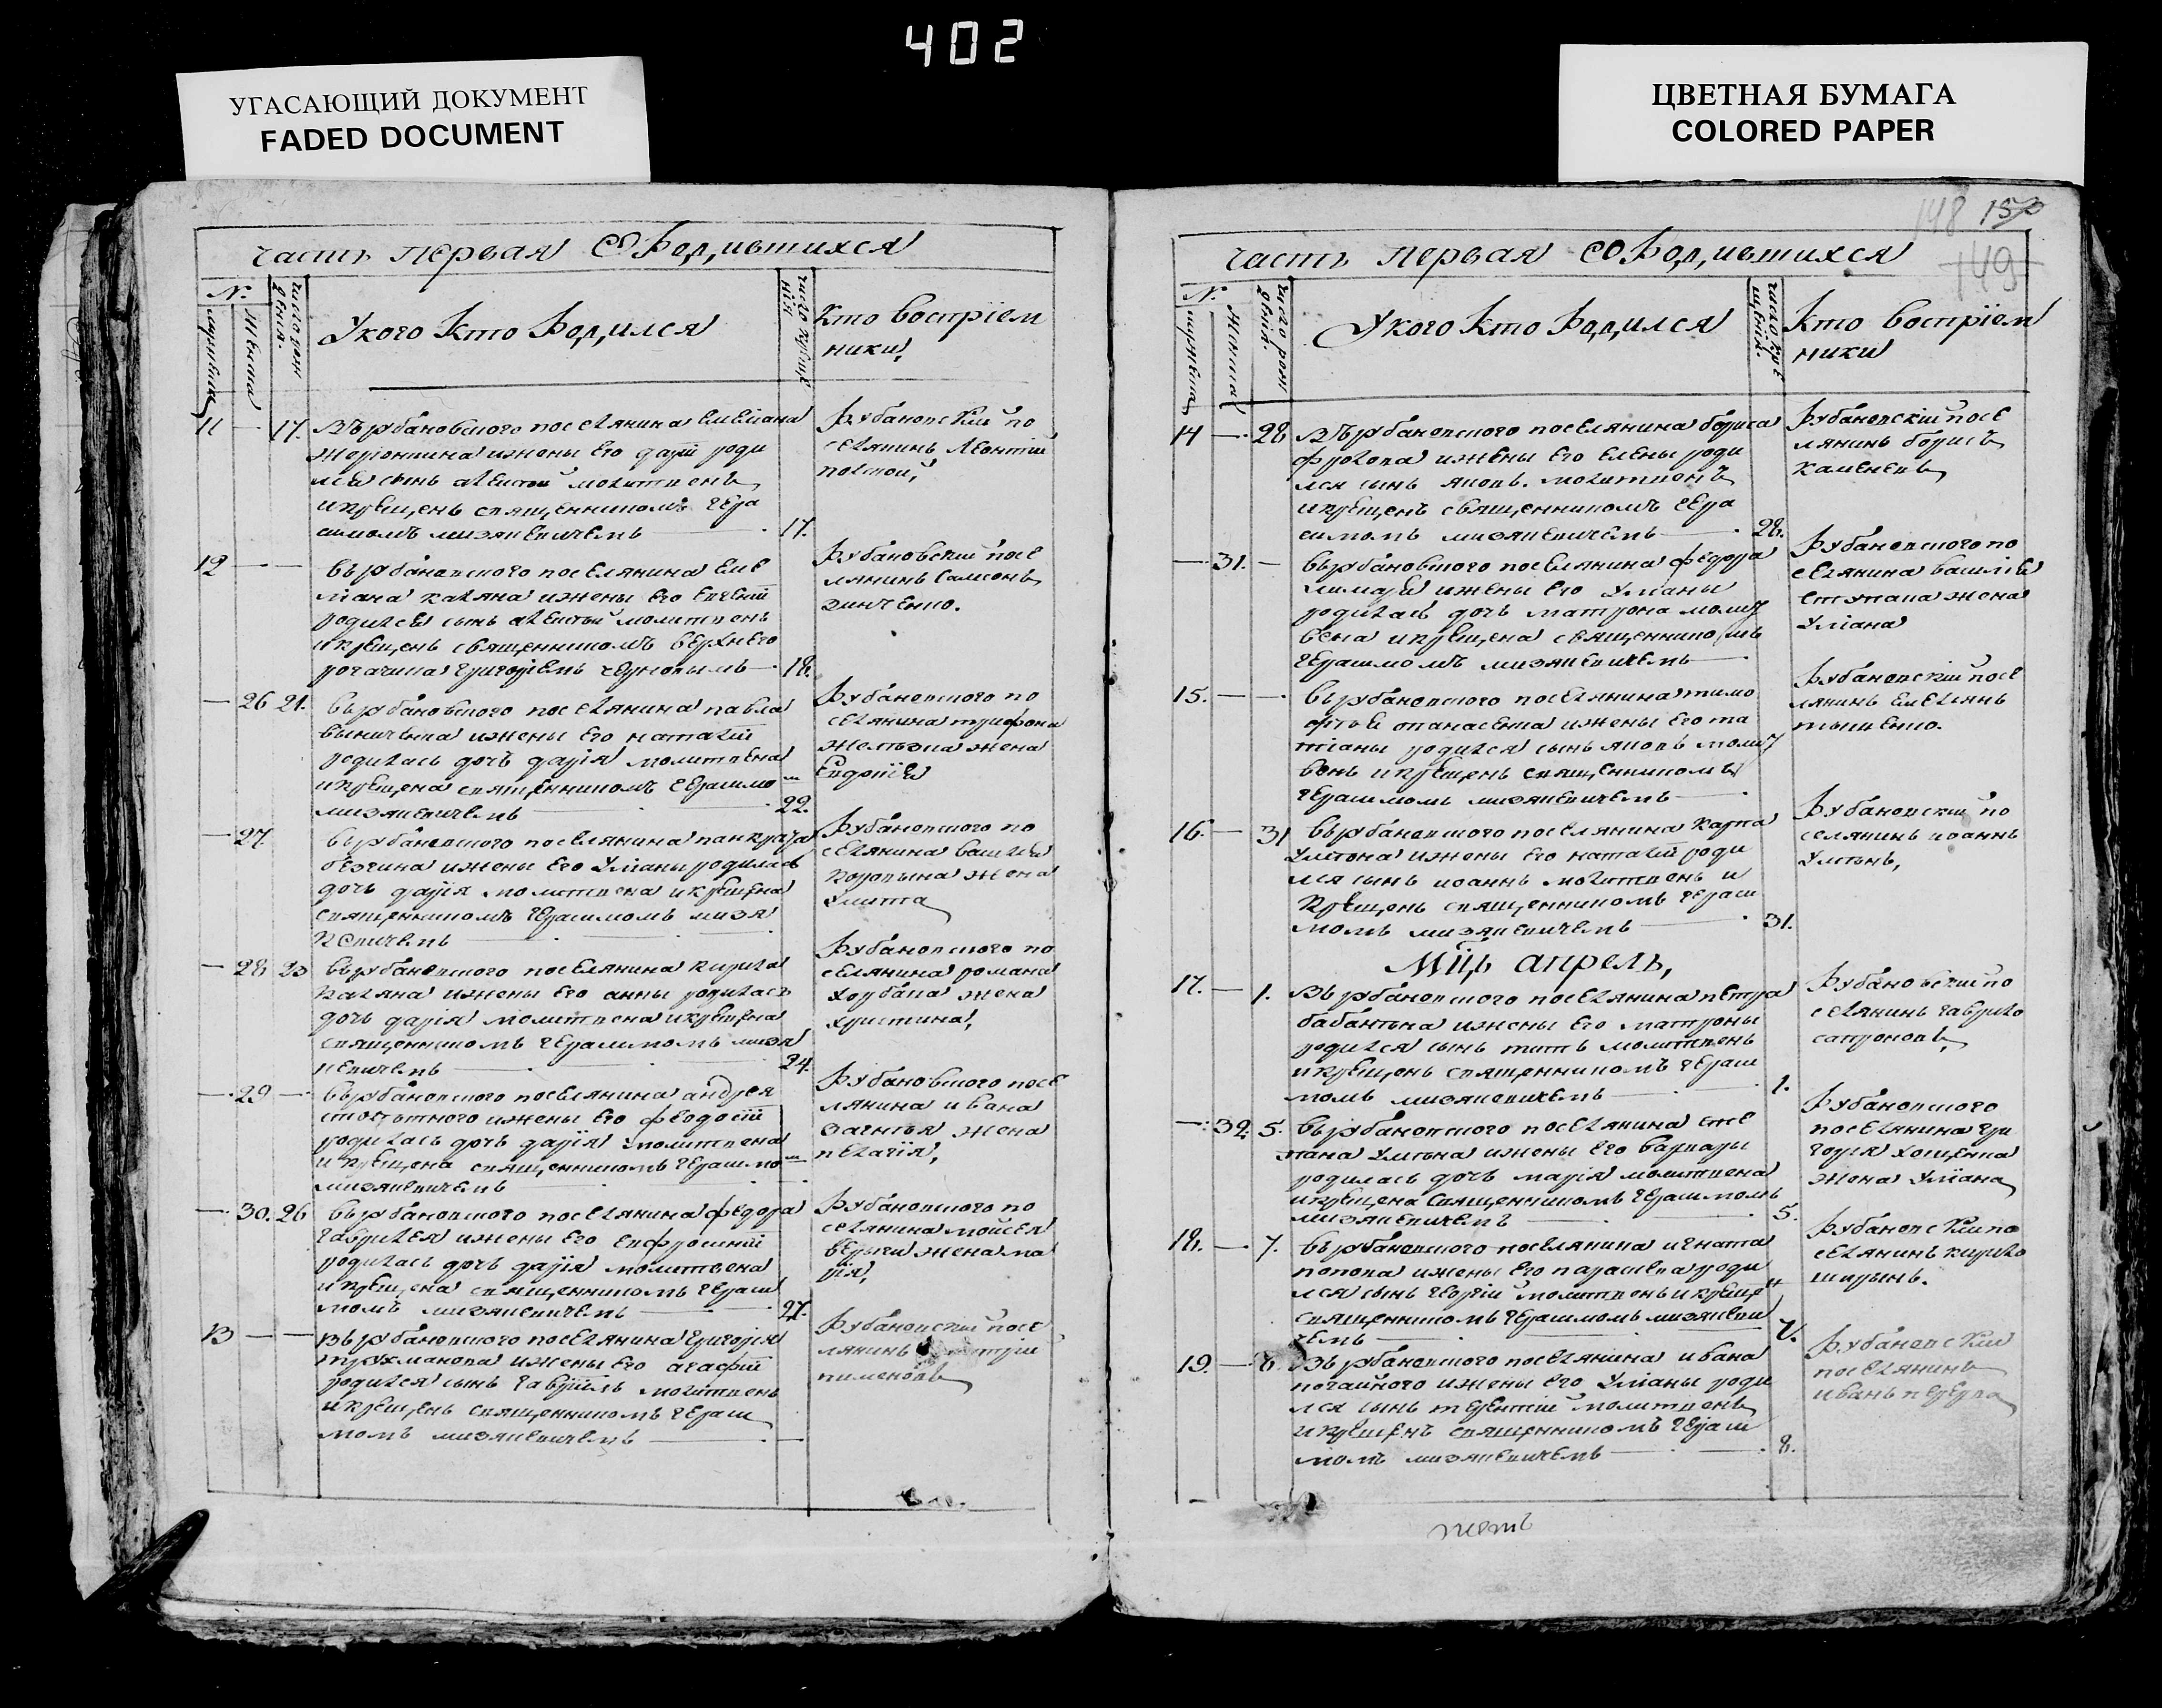 402
УГАСАЮЩИЙ ДОКУМЕНТ
FADED DOCUMENT
ЦВЕТНАЯ БУМАГА
COLORED PAPER
148 150
149
часть первая О Родившихся
№.
мужеска
женска
число рож
денія.
У кого Кто Родился
число крещенія
Кто Воспріем
ники,
11 — 17. Въ рубановского поселянина Емеліана
и жены его даріи роди
лся сынъ алексѣй молитвенъ
и крещенъ священникомъ гера
симомъ мизякевичемъ — 17.
Рубановскій по
селянинъ Леонтій
12 — — въ рубановского поселянина Еме
ліана каляна и жены его евгеніи
родился сынъ алексѣй молитвенъ
и крещенъ священникомъ верхнего
рогачика григоріемъ черновымъ — 18.
Рубановскій посе
лянинъ самсонъ
зинченко.
— 26 21. въ рубановского поселянина павла
и жены его наталіи
родилась дочь дарія молитвена
и крещена священникомъ герасимо м
мизякевичемъ — 22.
Рубановского по
селянина трифона
жена
Евдокія
— 27. въ рубановского поселянина панкрата
и жены его Уліаны родилась
дочь дарія молитвена и крещена
священникомъ герасимомъ мизя
кевичемъ —
Рубановского по
селянина василія
жена
Улита
— 28 23 въ рубановского поселянина кирила
каляна и жены его анны родилась
дочь дарія молитвена и крещена
священникомъ герасимомъ мизя
кевичемъ — 24.
Рубановского по
селянина романа
горбаня жена
христина,
— 29 — въ рубановского поселянина андрея
и жены его феодосіи
родилась дочь дарія молитвена
и крещена священникомъ герасимо м
мизякевичемъ
Рубановского посе
лянина ивана
жена
пелагія,
— 30. 26 въ рубановского поселянина федора
гаврилея и жены его евфросиніи
родилась дочь дарія молитвена
и крещена священникомъ гераси
момъ мизякевичемъ — 27.
Рубановского по
селянина мойсея
жена ма
рія,
13 — — въ рубановского поселянина григорія
трухманова и жены его агафіи
родился сынъ гавріилъ молитвенъ
и крещенъ священникомъ гераси
момъ мизякевичемъ —
Рубановскій посе
лянинъ
пименовъ
часть первая О Родившихся
№.
мужеска
женска
число рож
денія.
У кого Кто Родился
число кре
щенія.
Кто Воспріем
ники
14 — 28 Въ рубановского поселянина бориса
фролова и жены его елены роди
лся сынъ яковъ. молитвенъ
и крещенъ священникомъ гера
симомъ мизякевичемъ — 28.
Рубановскій посе
лянинъ борисъ
каменевъ
— 31. — въ рубановского поселянина федора
и жены его Уліаны
родилась дочь матрона молит
вена и крещена священникомъ
герасимомъ мизякевичемъ —
Рубановского по
селянина василія
жена
Уліана
15. — — въ рубановского поселянина тимо
фѣя опанасенка и жены его та
тіаны родился сынъ яковъ молит
венъ и крещенъ священникомъ
герасимомъ мизякевичемъ —
Рубановскій посе
лянинъ емельянъ
16. — 31 въ рубановского поселянина карпа
и жены его наталіи роди
лся сынъ иоаннъ молитвенъ и
крещенъ священникомъ гераси
момъ мизякевичемъ — 31.
Рубановскій по
селянинъ иоаннъ
Мцъ апрель,
17. — 1. Въ рубановского поселянина петра
и жены его матроны
родился сынъ титъ молитвенъ
и крещенъ священникомъ гераси
момъ мизякевичемъ — 1.
Рубановскій по
селянинъ гаврило
сапроновъ,
— 32. 5. въ рубановского поселянина сте
пана и жены его варвары
родилась дочь марія молитвена
и крещена священникомъ герасимомъ
мизякевичемъ — 5.
Рубановского
поселянина гри
горія
жена Уліана
18. — 7. въ рубановского поселянина игната
попова и жены его параскева роди
лся сынъ георгій молитвенъ и креще н
священникомъ герасимомъ мизякеви
чемъ — 7.
Рубановскій по
селянинъ кирило
19. — 8. въ рубановского поселянина ивана
и жены его Уліаны роди
лся сынъ терентій молитвенъ
и крещенъ священникомъ гераси
момъ мизякевичемъ — 8.
Рубановскій
поселянинъ
иванъ